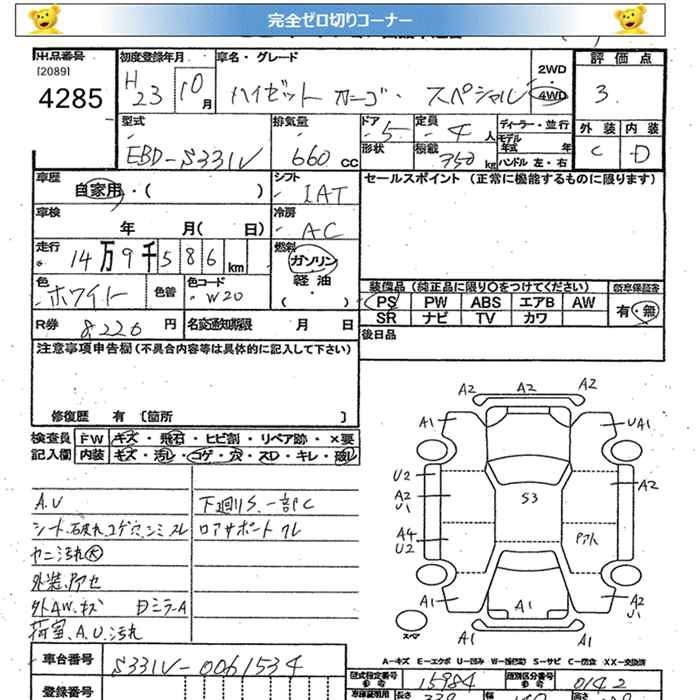 完全ゼロ切りコーナー
出品番号 初度登録年月 車名・グレード 2WD 評価点
[2089]
4285 H23 10月 ハイゼット カーゴ・ スペシャル 4WD 3
型式 排気量 ドア 5 定員 4人 ディーラー・並行 外装 内装
EBD-S331V 660 CC 形状 積載 350kg モデル年式 年 C D
ハンドル 左・右
車歴 自家用・( ) シフト IAT セールスポイント (正常に機能するものに限ります)
車検 年 月( 日) 冷房 AC
走行 14万9千586km 燃料 ガソリン
軽油
( ・ )
色 ホワイト 色替 色コード W20
装備品(純正品に限り○をつけてください) 新車保証書
PS PW ABS エアB AW 有・無
SR ナビ TV カワ
R券 8220円 名変通知期限 月 日 後日品
注意事項申告欄(不具合内容等は具体的に記入して下さい)
修復歴 有 [箇所 ]
検査員 FW キズ・飛石・ヒビ割・リペア跡・×要
記入欄 内装 キズ・汚レ・コゲ・穴・スレ・キレ・破レ
A.U 下廻りS.一部C
シート.破れ コゲ穴.シミ スレ ロアサポート クレ
ヤニ汚れ大
外装.アセ
外AW.キズ Dミラ-A
荷室.A.U.汚れ
A2 A2 A2
A1 UA1
U2 A2
A2
U1 S3
A4 アト
U2
A1 A1 A2
U1
スペア A1 A1
A-キズ E-エクボ U-凹み W-補修(波) S-サビ C-腐食 XX-交換済
車台番号 S331V-0061534
型式指定番号 15984 類別区分番号 0142
登録番号 長さ 339 幅 高さ